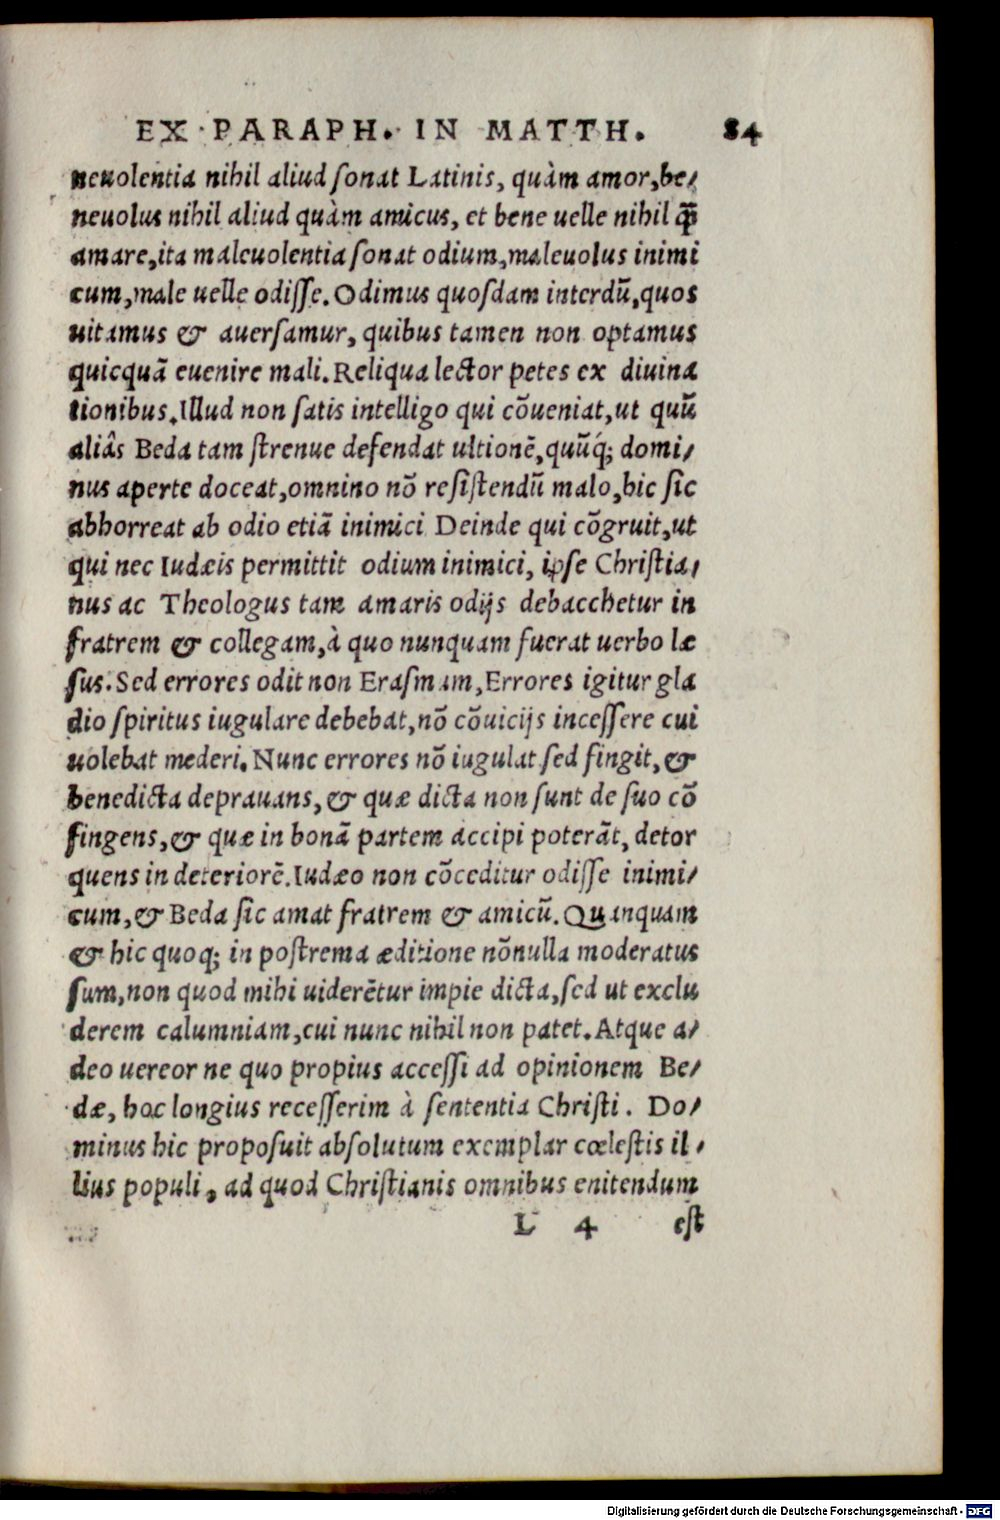 EX PARAPH. IN MATTH. 84
neuolentia nihil aliud sonat Latinis, quàm amor, be/
neuolus nihil aliud quàm amicus, et bene uelle nihil q̄
amare, ita maleuolentia sonat odium, maleuolus inimi
cum, male uelle odisse. Odimus quosdam interdũ, quos
uitamus & auersamur, quibus tamen non optamus
quicquã euenire mali. Reliqua lector petes ex diuina
tionibus. Illud non satis intelligo qui cõueniat, ut quũ
aliâs Beda tam strenue defendat ultionẽ, quũq́; domi/
nus aperte doceat, omnino nõ resistendũ malo, hic sic
abhorreat ab odio etiã inimici Deinde qui cõgruit, ut
qui nec Iudæis permittit odium inimici, ipse Christia/
nus ac Theologus tam amaris odijs debacchetur in
fratrem & collegam, à quo nunquam fuerat uerbo læ
sus. Sed errores odit non Erasmum, Errores igitur gla
dio spiritus iugulare debebat, nõ cõuicijs incessere cui
uolebat mederi. Nunc errores nõ iugulat sed fingit, &
benedicta deprauans, & quæ dicta non sunt de suo cõ
fingens, & quæ in bonã partem accipi poterãt, detor
quens in deteriorẽ. Iudæo non cõceditur odisse inimi/
cum, & Beda sic amat fratrem & amicũ. Quanquam
& hic quoq; in postrema æditione nõnulla moderatus
sum, non quod mihi uiderẽtur impie dicta, sed ut exclu
derem calumniam, cui nunc nihil non patet. Atque a/
deo uereor ne quo propius accessi ad opinionem Be/
dæ, hoc longius recesserim à sententia Christi. Do/
minus hic proposuit absolutum exemplar cœlestis il/
lius populi, ad quod Christianis omnibus enitendum
L 4 est
Digitalisierung gefördert durch die Deutsche Forschungsgemeinschaft - DFG